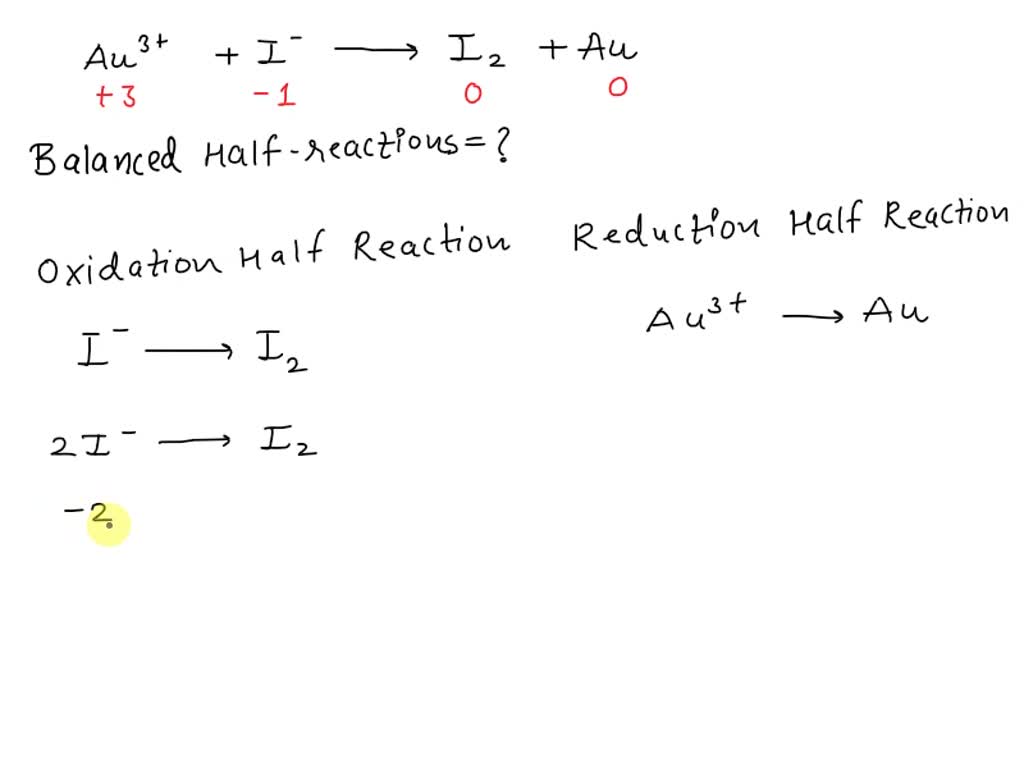 Au³⁺ + I⁻ ⟶ I₂ + Au
+3 -1 0 0
Balanced Half-reactions = ?
Oxidation Half Reaction
I⁻ ⟶ I₂
2I⁻ ⟶ I₂
-2
Reduction Half Reaction
Au³⁺ ⟶ Au